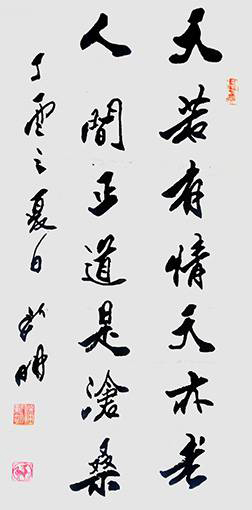 天若有情天亦老
人間正道是滄桑
丁酉之夏日